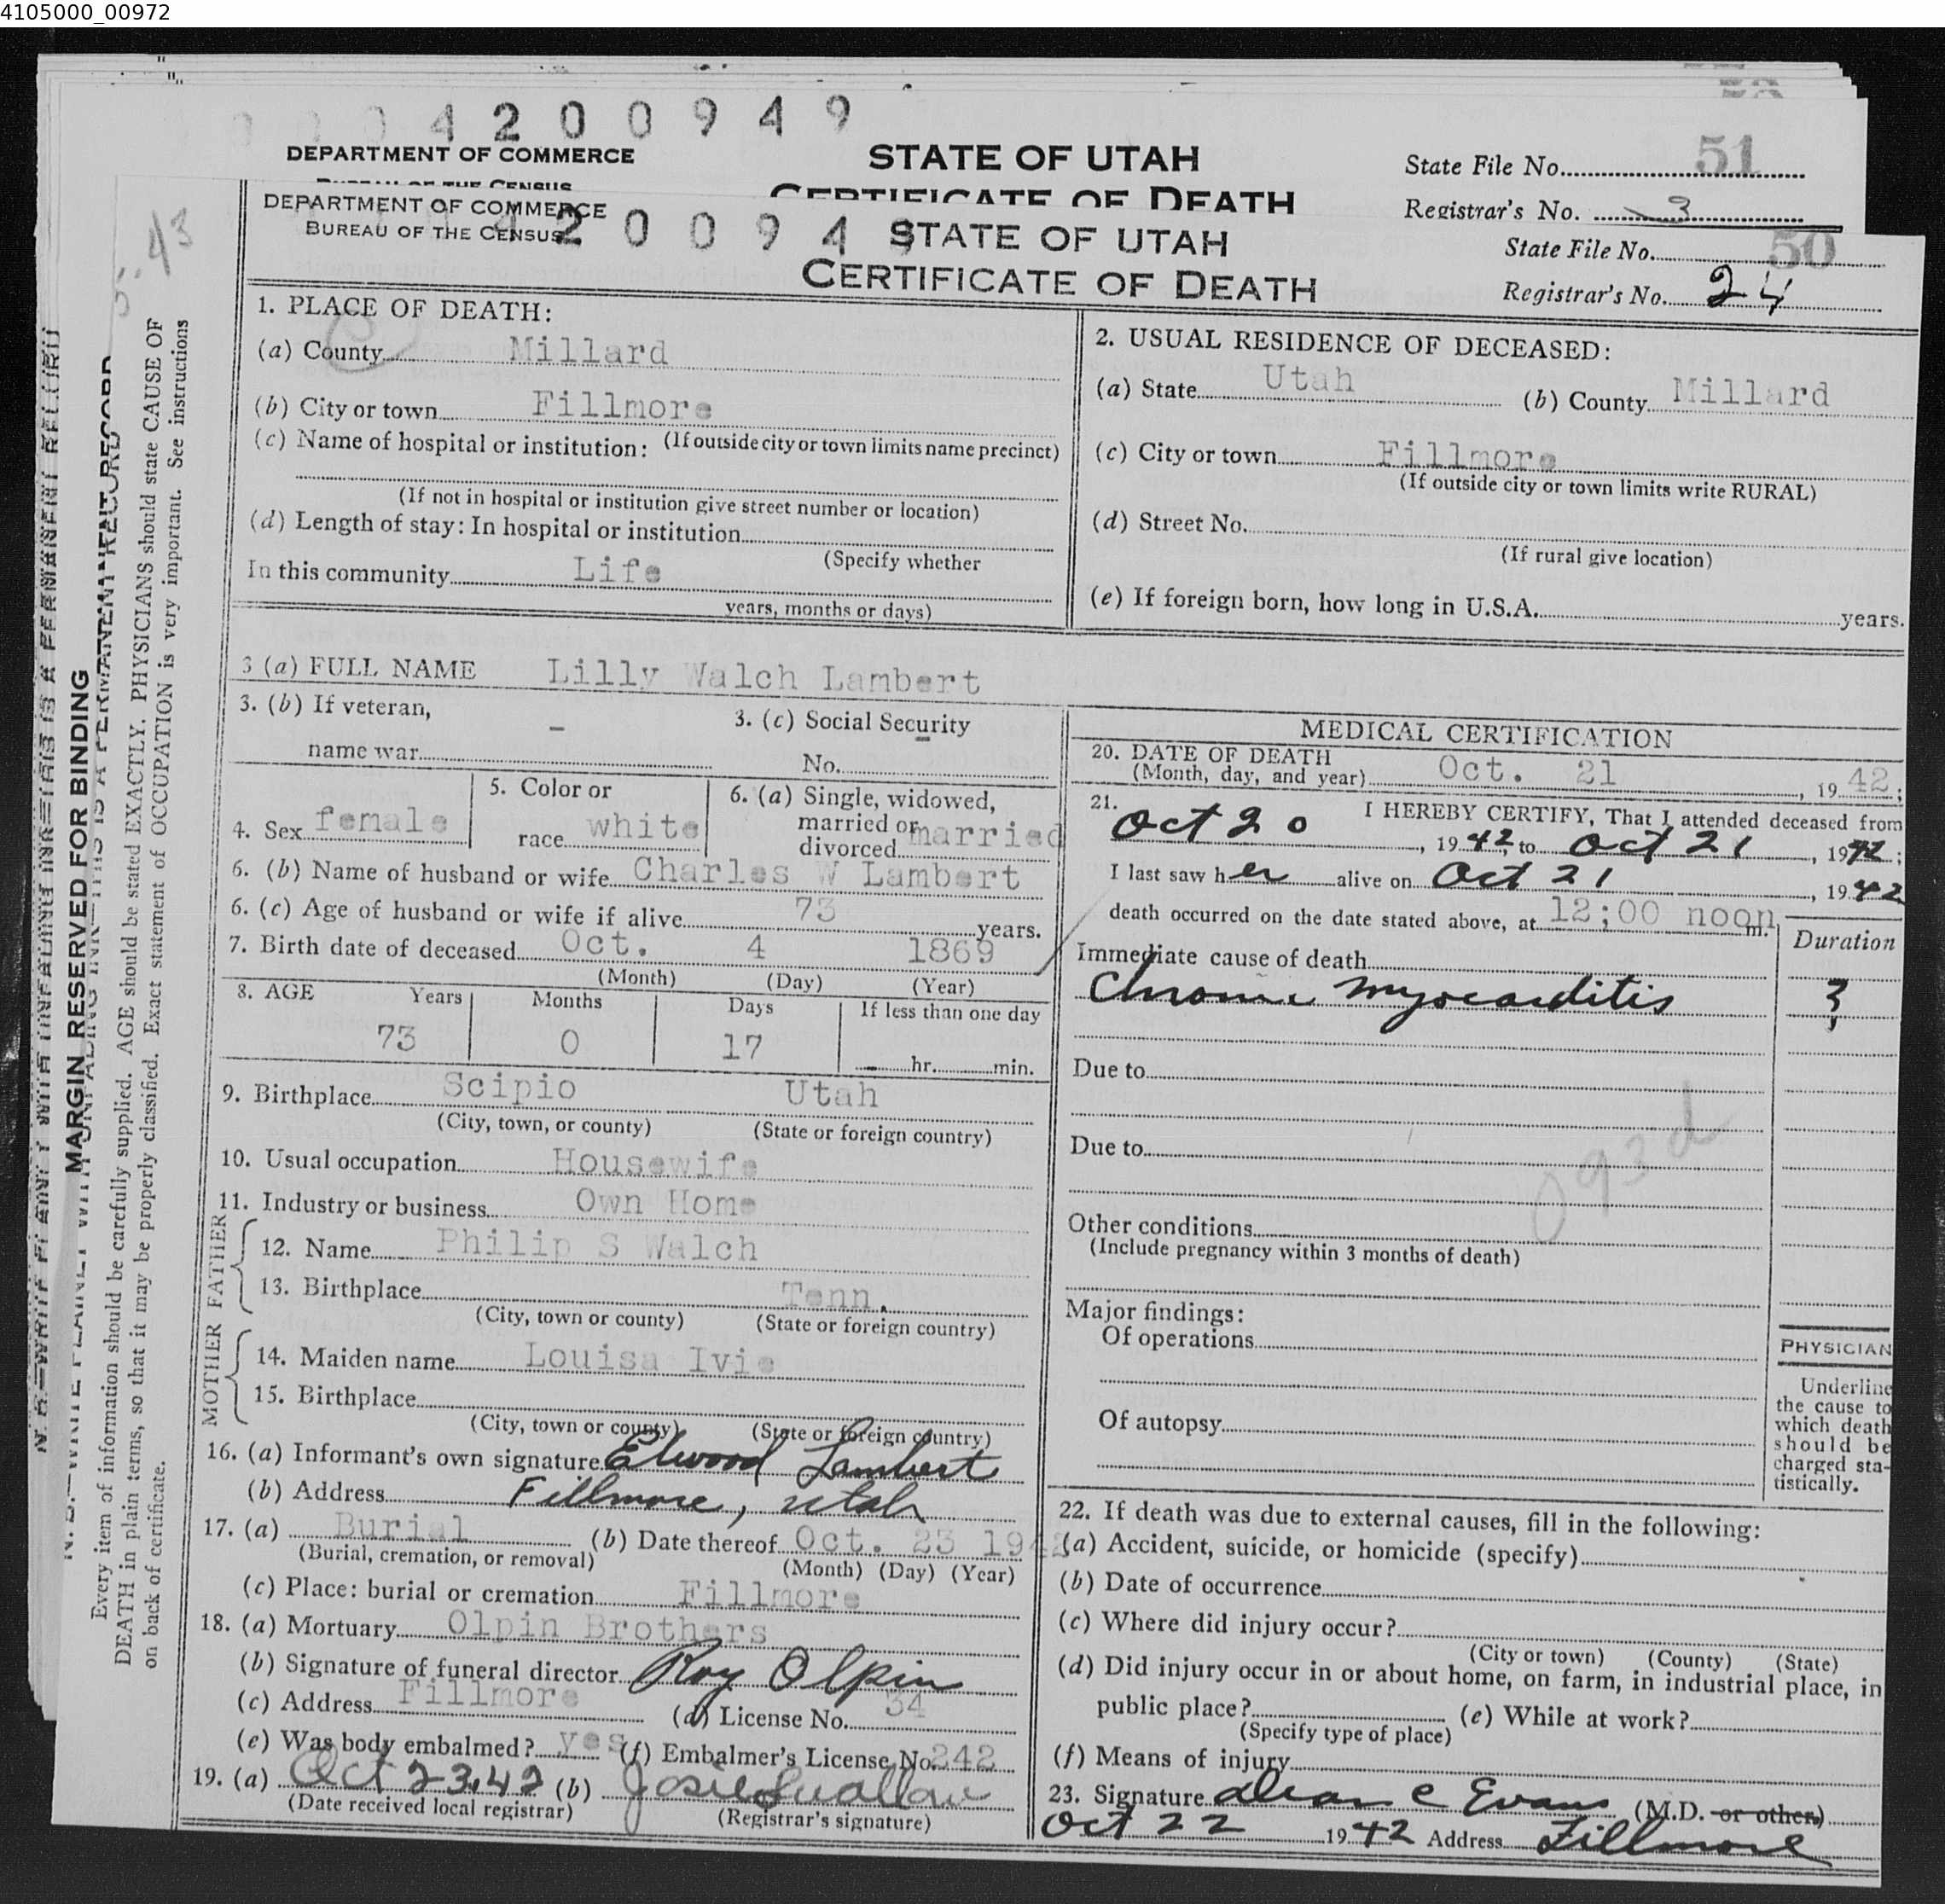 4105000_00972
4200949
DEPARTMENT OF COMMERCE
STATE OF UTAH
CERTIFICATE OF DEATH
State File No. 51
Registrar's No. 3
DEPARTMENT OF COMMERCE
BUREAU OF THE CENSUS
20094
STATE OF UTAH
CERTIFICATE OF DEATH
State File No. 50
Registrar's No. 24
MARGIN RESERVED FOR BINDING
Every item of information should be carefully supplied. AGE should be stated EXACTLY. PHYSICIANS should state CAUSE OF
DEATH in plain terms, so that it may be properly classified. Exact statement of OCCUPATION is very important. See instructions
on back of certificate.
1. PLACE OF DEATH:
(a) County Millard
(b) City or town Fillmore
(c) Name of hospital or institution: (If outside city or town limits name precinct)
(If not in hospital or institution give street number or location)
(d) Length of stay: In hospital or institution
(Specify whether
In this community Life
years, months or days)
2. USUAL RESIDENCE OF DECEASED:
(a) State Utah (b) County Millard
(c) City or town Fillmore
(If outside city or town limits write RURAL)
(d) Street No.
(If rural give location)
(e) If foreign born, how long in U.S.A. years.
3 (a) FULL NAME Lilly Walch Lambert
3. (b) If veteran, - 3. (c) Social Security
name war No. -
4. Sex female
5. Color or
race white
6. (a) Single, widowed,
married or
divorced married
6. (b) Name of husband or wife Charles W Lambert
6. (c) Age of husband or wife if alive 73 years.
7. Birth date of deceased Oct. 4 1869
(Month) (Day) (Year)
8. AGE Years Months Days If less than one day
73 0 17 hr. min.
9. Birthplace Scipio Utah
(City, town, or county) (State or foreign country)
10. Usual occupation Housewife
11. Industry or business Own Home
FATHER
12. Name Philip S Walch
13. Birthplace Tenn.
(City, town or county) (State or foreign country)
MOTHER
14. Maiden name Louisa Ivie
15. Birthplace
(City, town or county) (State or foreign country)
16. (a) Informant's own signature Elwood Lambert
(b) Address Fillmore, Utah
17. (a) Burial (b) Date thereof Oct. 23 1942
(Burial, cremation, or removal) (Month) (Day) (Year)
(c) Place: burial or cremation Fillmore
18. (a) Mortuary Olpin Brothers
(b) Signature of funeral director Roy Olpin
(c) Address Fillmore (d) License No. 34
(e) Was body embalmed? yes (f) Embalmer's License No. 242
19. (a) Oct 23, 42 (b) Josie Swallow
(Date received local registrar) (Registrar's signature)
MEDICAL CERTIFICATION
20. DATE OF DEATH
(Month, day, and year) Oct. 21, 1942;
21. I HEREBY CERTIFY, That I attended deceased from
Oct 20, 1942, to Oct 21, 1942;
I last saw her alive on Oct 21, 1942
death occurred on the date stated above, at 12;00 noon m.
Duration
Immediate cause of death
Chronic myocarditis ?
Due to
Due to
093d
Other conditions
(Include pregnancy within 3 months of death)
Major findings:
Of operations
Of autopsy
PHYSICIAN
Underline
the cause to
which death
should be
charged sta-
tistically.
22. If death was due to external causes, fill in the following:
(a) Accident, suicide, or homicide (specify)
(b) Date of occurrence
(c) Where did injury occur?
(City or town) (County) (State)
(d) Did injury occur in or about home, on farm, in industrial place, in
public place? (e) While at work?
(Specify type of place)
(f) Means of injury
23. Signature Dean C Evans (M.D. or other)
Oct 22 1942 Address Fillmore